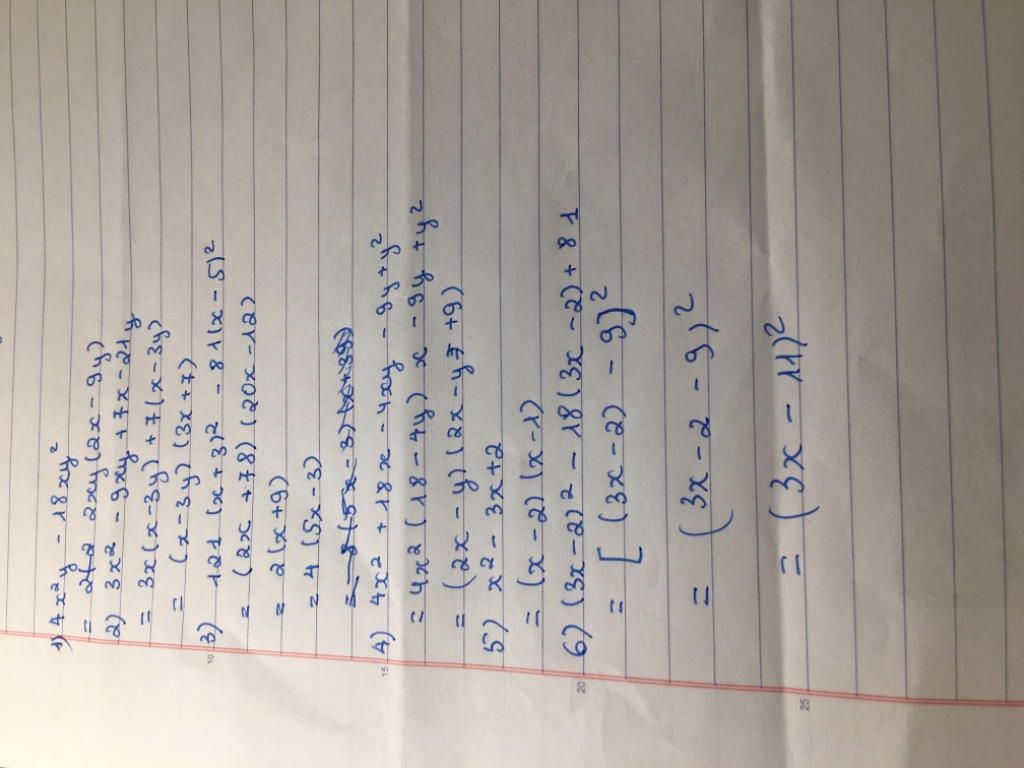 1) 4x²y - 18xy²
= 2xy(2x - 9y)
2) 3x² - 9xy + 7x - 21y
= 3x(x - 3y) + 7(x - 3y)
= (x - 3y)(3x + 7)
10
3) 121(x + 3)² - 81(x - 5)²
= (2x + 78)(20x - 12)
= 2(x + 9)
= 4(5x - 3)
15
4) 4x² + 18x - 4xy - 9y + y²
= 4x²(18 - 4y) x - 9y + y²
= (2x - y)(2x - y + 9)
5) x² - 3x + 2
= (x - 2)(x - 1)
20
6) (3x - 2)² - 18(3x - 2) + 81
= [(3x - 2) - 9]²
= (3x - 2 - 9)²
25
= (3x - 11)²